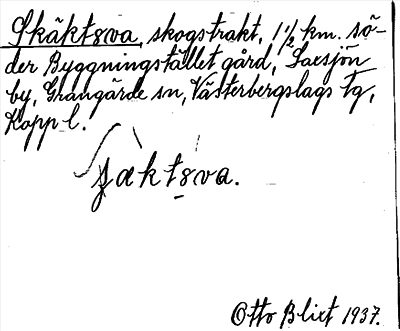 Skäktsva, skogstrakt, 1 1/2 km. sö-
der Byggningstället gård, Saxsjön
by, Grangärde sn, Västerbergslags tg,
Kopp l.
ʃæktsva.
Otto Blixt 1937.